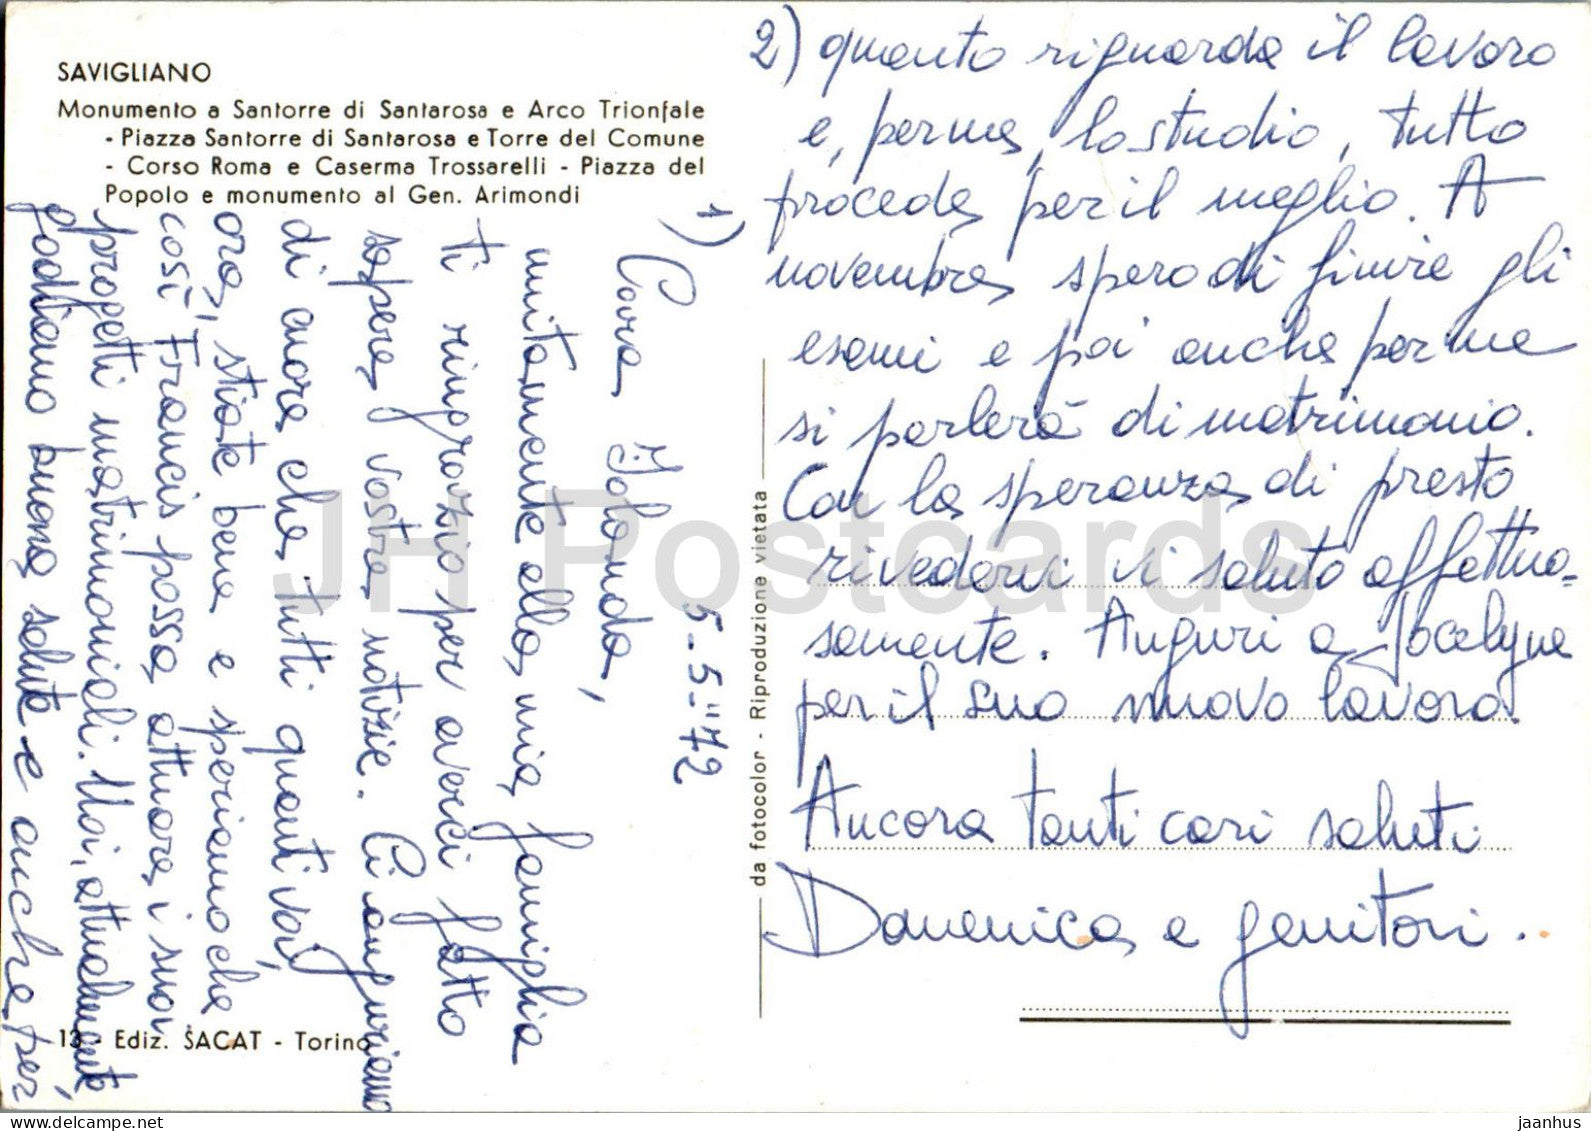 SAVIGLIANO
Monumento a Santorre di Santarosa e Arco Trionfale
- Piazza Santorre di Santarosa e Torre del Comune
- Corso Roma e Caserma Trossarelli - Piazza del
Popolo e monumento al Gen. Arimondi
5-5-"72
1) Cara Jolanda,
unitamente alla mia famiglia
ti ringrazio per averci fatto
sapere vostre notizie. Ci auguriamo
di cuore che tutti quanti voi,
ora, stiate bene e speriamo che
così Francis possa attuare i suoi
progetti matrimoniali. Noi, attualmente
godiamo buona salute e anche per
2) quanto riguarda il lavoro
e, per me, lo studio, tutto
procede per il meglio. A
novembre spero di finire gli
esami e poi anche per me
si parlerà di matrimonio.
Con la speranza di presto
rivedervi vi saluto affettuo-
samente. Auguri a Jocelyne
per il suo nuovo lavoro.
Ancora tanti cari saluti
Domenica e genitori.
da fotocolor - Riproduzione vietata
13 - Ediz. SACAT - Torino
JH Postcards
www.delcampe.net
jaanhus